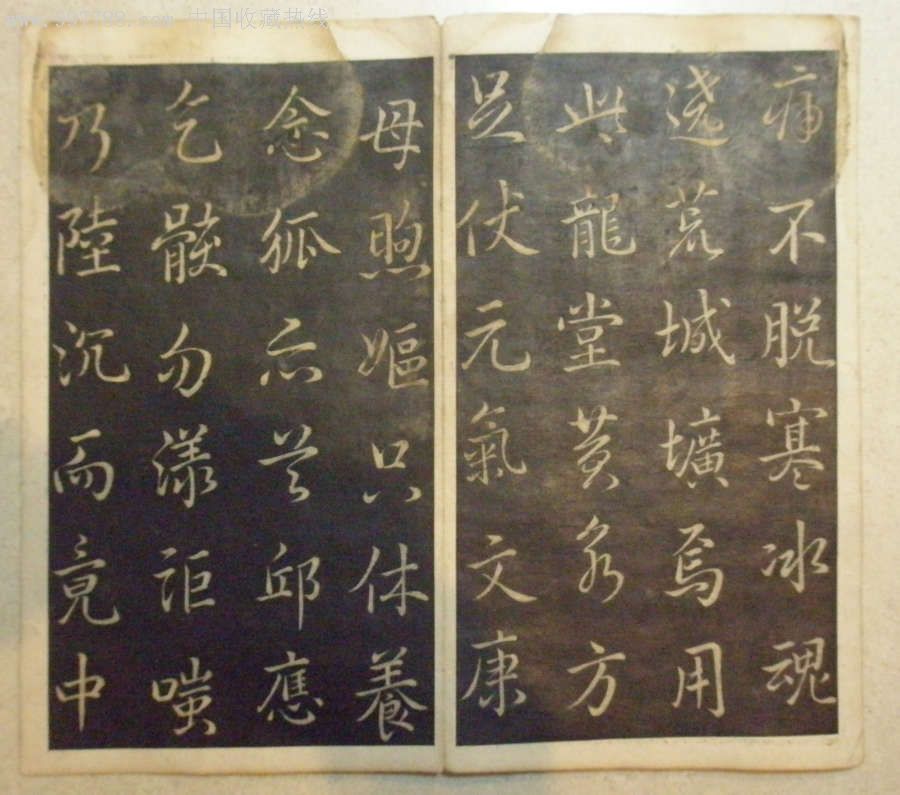 www.997788.com 中国收藏热线
痛不脱寒冰魂
遶荒城壙焉用
此龍堂黄泉方
足伏元氣文康
母煦嫗只休養
念狐丘首邱應
乞骸勿漾詎嗤
乃陸沉而竟中